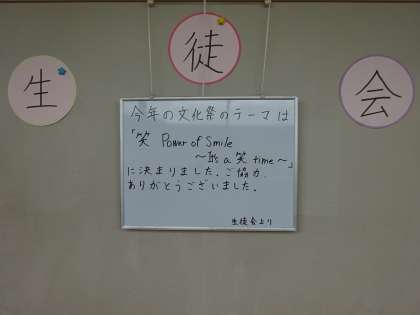 生徒会
今年の文化祭のテーマは
「笑 Power of Smile
a 笑 time〜」
に決まりました。ご協力、
ありがとうございました。
生徒会より